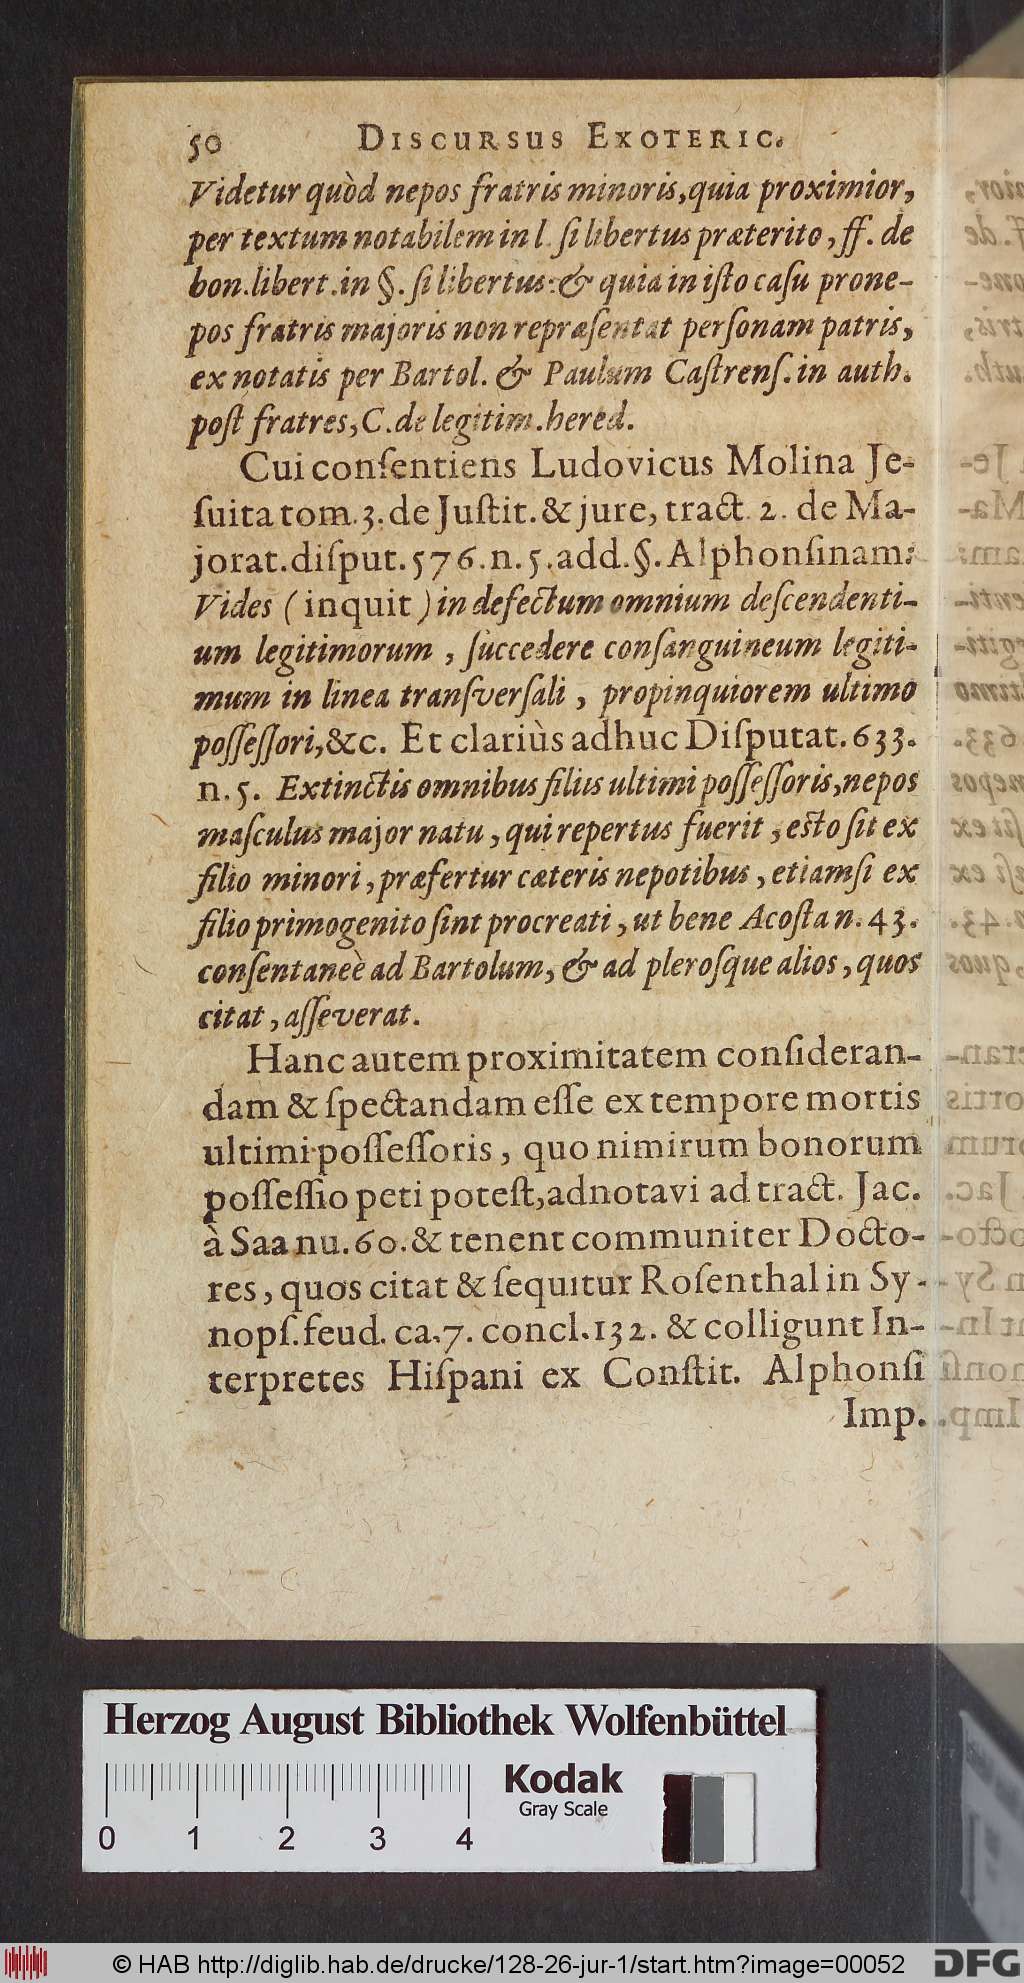 50 DISCURSUS EXOTERIC.
Videtur quòd nepos fratris minoris, quia proximior,
per textum notabilem in l. ſi libertus præterito, ff. de
bon. libert. in §. ſi libertus: & quia in iſto caſu prone-
pos fratris majoris non repræſentat perſonam patris,
ex notatis per Bartol. & Paulum Caſtrenſ. in auth.
poſt fratres, C. de legitim. hered.
Cui conſentiens Ludovicus Molina Je-
ſuita tom. 3. de Juſtit. & jure, tract. 2. de Ma-
jorat. diſput. 576. n. 5. add. §. Alphonſinam:
Vides (inquit) in defectum omnium deſcendenti-
um legitimorum, ſuccedere conſanguineum legiti-
mum in linea tranſverſali, propinquiorem ultimo
poſſeſſori, &c. Et clariùs adhuc Diſputat. 633.
n. 5. Extinctis omnibus filiis ultimi poſſeſſoris, nepos
maſculus major natu, qui repertus fuerit, eſto ſit ex
filio minori, præfertur cæteris nepotibus, etiamſi ex
filio primogenito ſint procreati, ut bene Acoſta n. 43.
conſentaneè ad Bartolum, & ad pleroſque alios, quos
citat, aſſeverat.
Hanc autem proximitatem conſideran-
dam & ſpectandam eſſe ex tempore mortis
ultimi poſſeſſoris, quo nimirum bonorum
poſſeſſio peti poteſt, adnotavi ad tract. Jac.
à Saa nu. 60. & tenent communiter Docto-
res, quos citat & ſequitur Roſenthal in Sy-
nopſ. feud. ca. 7. concl. 132. & colligunt In-
terpretes Hiſpani ex Conſtit. Alphonſi
Imp.
Herzog August Bibliothek Wolfenbüttel
Kodak
Gray Scale
0 1 2 3 4
© HAB http://diglib.hab.de/drucke/128-26-jur-1/start.htm?image=00052
DFG